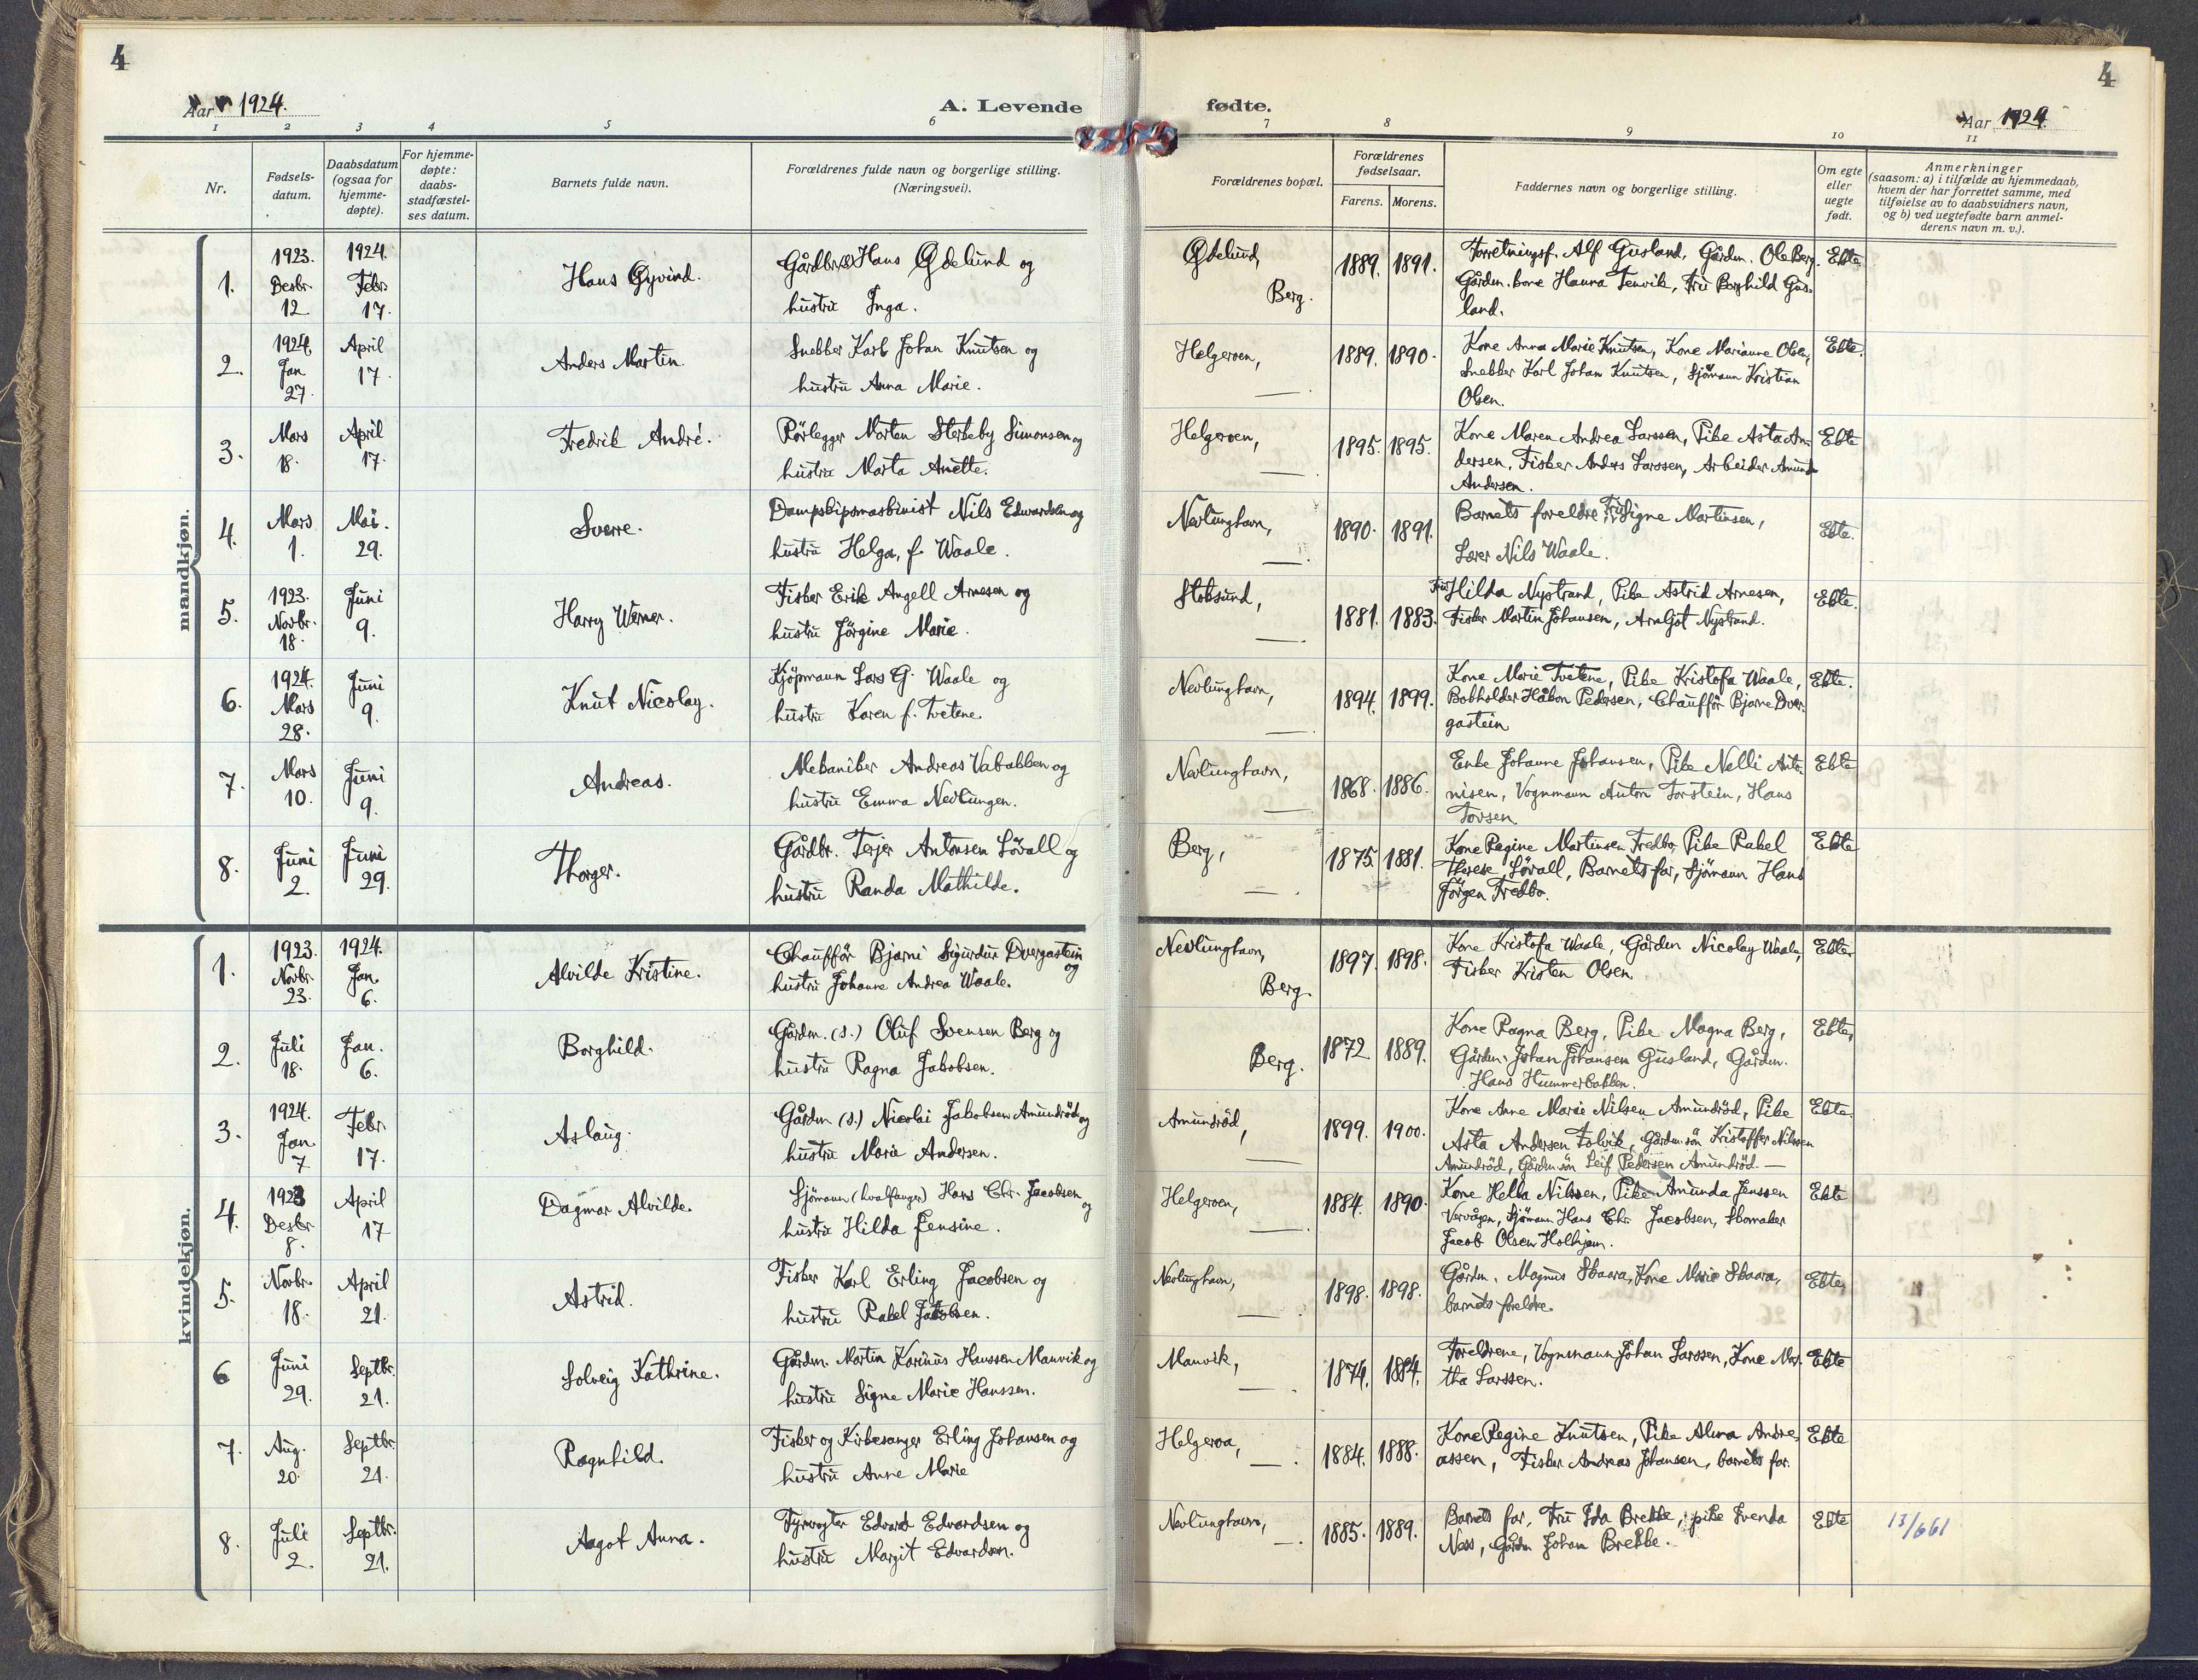 4
4
Aar 1924.
A. Levende fødte.
Aar 1924.
1 2 3 4 5 6 7 8 9 10 11
Nr.
Fødsels-
datum.
Daabsdatum
(ogsaa for
hjemme-
døpte).
For hjemme-
døpte:
daabs-
stadfæstel-
ses datum.
Barnets fulde navn.
Forældrenes fulde navn og borgerlige stilling.
(Næringsvei).
Forældrenes bopæl.
Forældrenes
fødselsaar.
Farens. Morens.
Faddernes navn og borgerlige stilling.
Om egte
eller
uegte
født.
Anmerkninger
(saasom: a) i tilfælde av hjemmedaab,
hvem der har forrettet samme, med
tilføielse av to daabsvidners navn,
og b) ved uegtefødte barn anmel-
derens navn m. v.).
mandkjøn.
1.
1923.
Desbr.
12
1924.
Febr.
17.
Hans Øyvind.
Gårdbr. Hans Ødelund og
hustru Inga.
Ødelund,
Berg.
1889. 1891.
Forretningsf. Alf Gusland, Gårdm. Ole Berg.
Gårdm. kone Hanna Tenvik, Fru Borghild Gus-
land.
Ekte.
2.
1924.
Jan
27.
April
17.
Anders Martin.
Snekker Karl Johan Knutsen og
hustru Anna Marie.
Helgeroen,
— .
1889. 1890.
Kone Anna Marie Knutsen, Kone Marianne Olsen,
Snekker Karl Johan Knutsen, Sjömann Kristian
Olsen.
Ekte.
3.
Mars
18.
April
17.
Fredrik André.
Rörlegger Morten Sterkeby Simonsen og
hustru Marta Anette.
Helgeroen,
— .
1895. 1895.
Kone Maren Andrea Larssen, Pike Asta An-
dersen, Fisker Anders Larssen, Arbeider Amund
Andersen.
Ekte
4.
Mars
1.
Mai.
29.
Sverre.
Dampskipsmaskinist Nils Edwardsen og
hustru Helga, f. Waale.
Nevlunghavn,
— .
1890. 1891.
Barnets foreldre, Fru Signe Martinsen,
Lærer Nils Waale.
Ekte.
5.
1923.
Novbr.
18.
Juni
9.
Harry Werner.
Fisker Erik Angell Arnesen og
hustru Jörgine Marie.
Stoksund,
— .
1881. 1883.
Fru Hilda Nystrand, Pike Astrid Arnesen,
Fisker Martin Johansen, Arnljot Nystrand.
Ekte.
6.
1924.
Mars
28.
Juni
9.
Knut Nicolay.
Kjöpmann Lars G. Waale og
hustru Karen f. Tvetene.
Nevlunghavn,
— .
1894. 1899.
Kone Marie Tvetene, Pike Kristofa Waale,
Bokholder Håkon Pedersen, Chaufför Bjarne Dver-
gastein
Ekte.
7.
Mars
10.
Juni
9.
Andreas.
Mekaniker Andreas Vabakken og
hustru Emma Nevlungen.
Nevlunghavn,
— .
1868. 1886.
Enke Johanne Johansen, Pike Nelli Anto-
nisen, Vognmann Anton Torstein, Hans
Torsen
Ekte
8.
Juni
2.
Juni
29.
Thorger.
Gårdbr. Terjer Antonsen Lövall og
hustru Randa Mathilde.
Berg,
— .
1875 1881.
Kone Regine Martinsen Fredbo, Pike Rakel
Therese Lövall, Barnets far, Sjömann Hans
Jörgen Fredbo.
Ekte
kvindekjøn.
1.
1923.
Novbr.
23.
1924.
Jan.
6.
Alvilde Kristine.
Chaufför Bjarni Sigurdur Dvergastein
og
hustru Johanne Andrea Waale.
Nevlunghavn,
Berg.
1897. 1898.
Kone Kristofa Waale, Gårdm Nicolay Waale,
Fisker Kristen Olsen.
Ekte.
2.
Juli
18.
Jan.
6.
Borghild.
Gårdm. (s.) Oluf Svensen Berg og
hustru Ragna Jakobsen.
Berg.
1872 1889.
Kone Ragna Berg, Pike Magna Berg,
Gårdm. Johan Johansen Gusland, Gårdm.
Hans Hummerbakken.
Ekte,
3.
1924.
Jan.
7
Febr.
17.
Aslaug.
Gårdm (s.) Nicolai Jakobsen Amundröd og
hustru Marie Andersen.
Amundröd,
— .
1899. 1900.
Kone Anne Marie Nilsen Amundröd, Pike
Asta Andersen Folvik, Gårdm. sön Kristoffer Nilssen
Amundröd, Gårdm sön Leif Pedersen Amundröd. —
Ekte.
4.
1923
Desbr.
8.
April
17
Dagmar Alvilde.
Sjömann (hvalfanger) Hans Chr. Jacobsen
og
hustru Hilda Jensine.
Helgeroen,
— .
1884. 1890.
Kone Helka Nilssen, Pike Amunda Jenssen
Vervågen, Sjömann Hans Chr. Jacobsen, Skomaker
Jacob Olsen Holhjem.
Ekte
5.
Novbr.
18.
April
21.
Astrid.
Fisker Karl Erling Jacobsen og
hustru Rakel Jakobsen.
Nevlunghavn,
— .
1898. 1898.
Gårdm. Magnus Skaara, Kone Marie Skaara,
barnets foreldre.
Ekte,
6
Juni
29.
Septbr.
21.
Solveig Kathrine.
Gårdm. Martin Karinius Hanssen Manvik og
hustru Signe Marie Hanssen.
Manvik,
— .
1874. 1884.
Foreldrene, Vognmann Johan Larssen, Kone Mar-
tha Larssen.
Ekte
7.
Aug.
20.
Septbr.
21.
Ragnhild.
Fisker og Kirkesanger Erling Johansen og
hustru Anne Marie
Helgeroa,
— .
1884. 1888.
Kone Regine Knutsen, Pike Alma Andre-
assen, Fisker Andreas Johansen, barnets far.
Ekte
8.
Juli
2.
Septbr.
21.
Aagot Anna.
Fyrvogter Edvard Edvardsen og
hustru Margit Edvardsen.
Nevlunghavn,
— .
1885. 1889.
Barnets far, Fru Ida Brekke, pike Svenda
Ness, Gårdm Johan Brekke.
Ekte
13/661